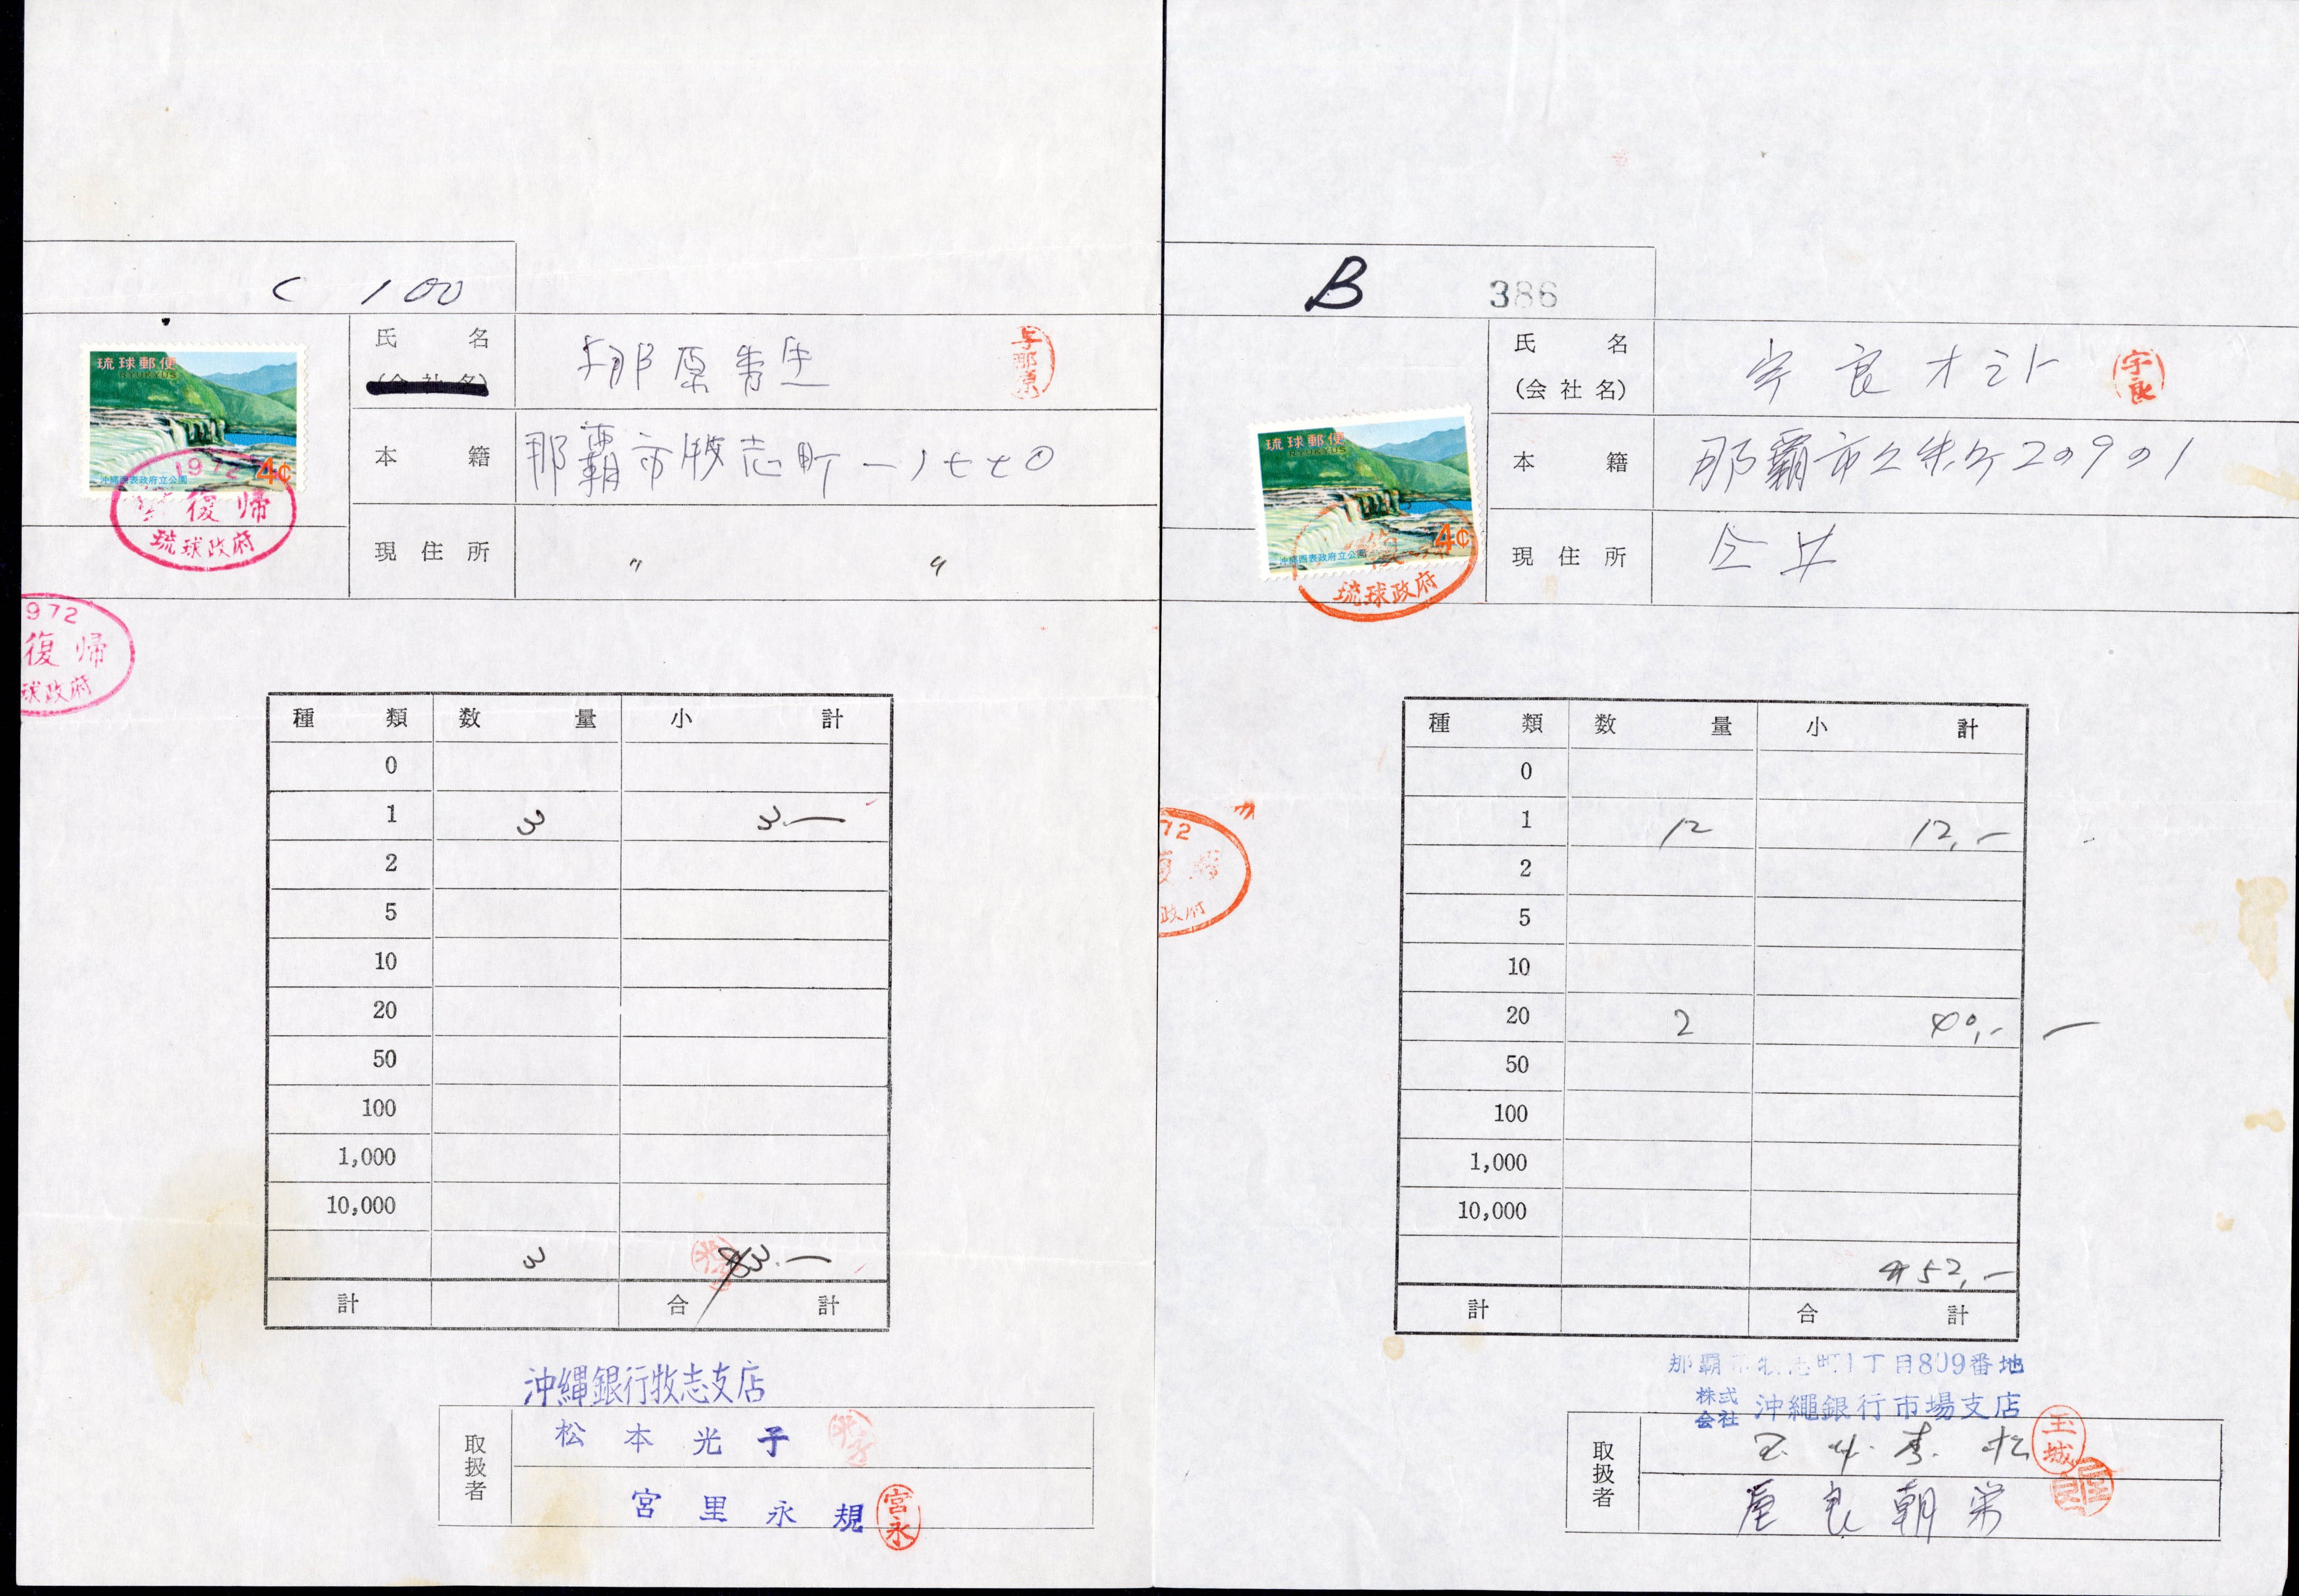 C 100
琉球郵便
RYUKYUS
4¢
沖縄西表政府立公園
1972
復帰
琉球政府
氏名
与那原
本籍
那覇市牧志町一ノ七七〇
現住所
〃 〃
972
復帰
球政府
種類 数量 小計
0
1 3 3.—
2
5
10
20
50
100
1,000
10,000
3 3.—
計 合計
沖縄銀行牧志支店
取扱者
松本光子
光子
宮里永規
宮永
B 386
琉球郵便
RYUKYUS
4¢
沖縄西表政府立公園
琉球政府
氏名
(会社名)
宇良オミト
宇良
本籍
那覇市 2の9の1
現住所
72
政府
種類 数量 小計
0
1 12 12,—
2
5
10
20 2 40,— —
50
100
1,000
10,000
52,—
計 合計
那覇市牧志町1丁目809番地
株式会社 沖繩銀行市場支店
取扱者
玉城
屋良朝栄
屋良